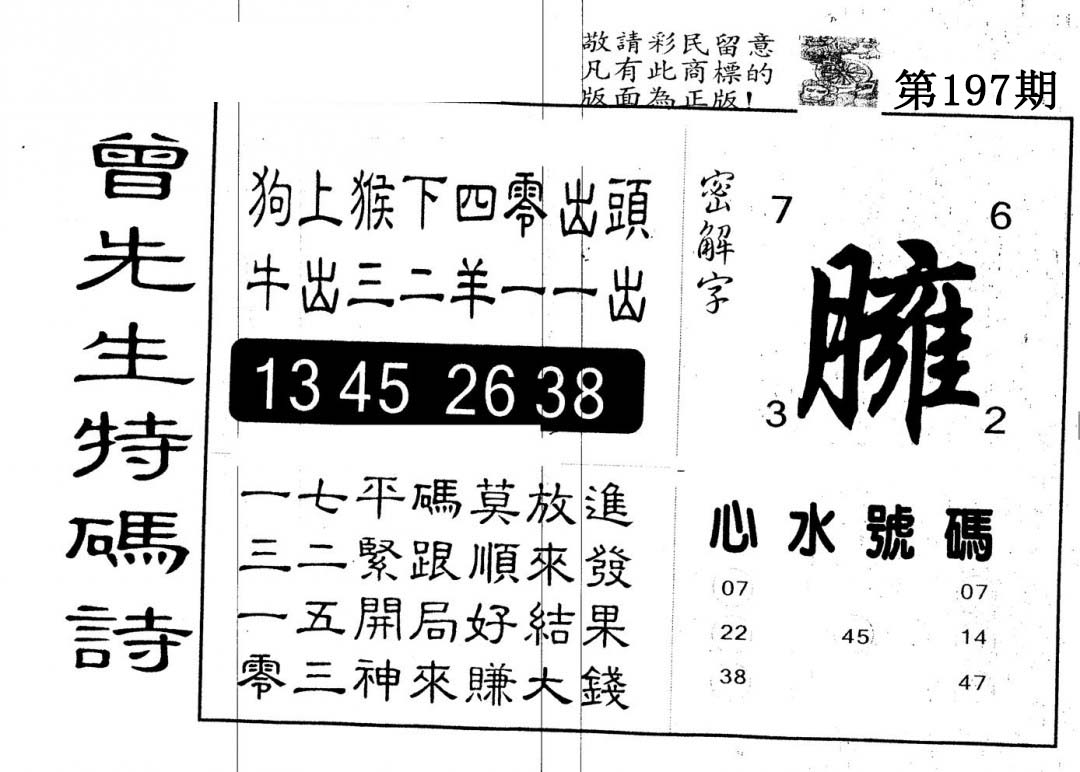 敬請彩民留意
凡有此商標的
版面為正版!
第197期
曾先生特碼詩
狗上猴下四零出頭
牛出三二羊一一出
13 45 26 38
一七平碼莫放進
三二緊跟順來發
一五開局好結果
零三神來賺大錢
密解字
7 6
臃
3 2
心水號碼
07 07
22 45 14
38 47